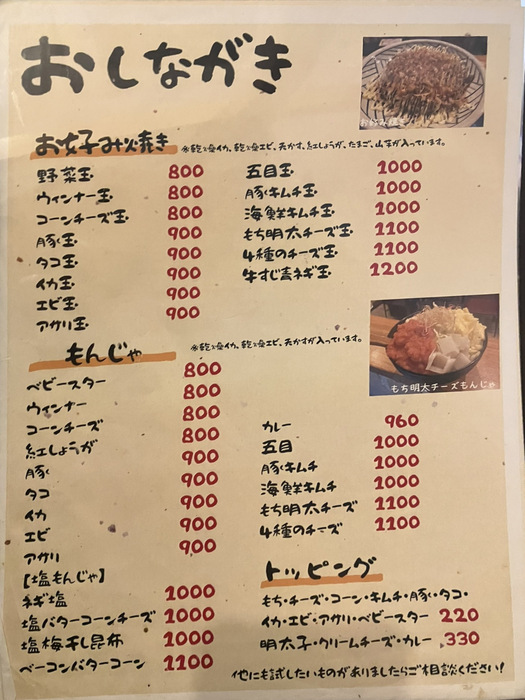 おしながき
お好み焼き
お好み焼き ※乾燥イカ、乾燥エビ、天かす、紅しょうが、たまご、山芋が入っています。
野菜玉 800
ウィンナー玉 800
コーンチーズ玉 800
豚玉 900
タコ玉 900
イカ玉 900
エビ玉 900
アサリ玉 900
五目玉 1000
豚キムチ玉 1000
海鮮キムチ玉 1000
もち明太チーズ玉 1100
4種のチーズ玉 1100
牛すじ青ネギ玉 1200
もんじゃ ※乾燥イカ、乾燥エビ、天かすが入っています。
もち明太チーズもんじゃ
ベビースター 800
ウィンナー 800
コーンチーズ 800
紅しょうが 800
豚 900
タコ 900
イカ 900
エビ 900
アサリ 900
【塩もんじゃ】
ネギ塩 1000
塩バターコーンチーズ 1000
塩梅干し昆布 1000
ベーコンバターコーン 1100
カレー 960
五目 1000
豚キムチ 1000
海鮮キムチ 1000
もち明太チーズ 1100
4種のチーズ 1100
トッピング
もち・チーズ・コーン・キムチ・豚・タコ・
イカ・エビ・アサリ・ベビースター 220
明太子・クリームチーズ・カレー 330
他にも試したいものがありましたらご相談ください!